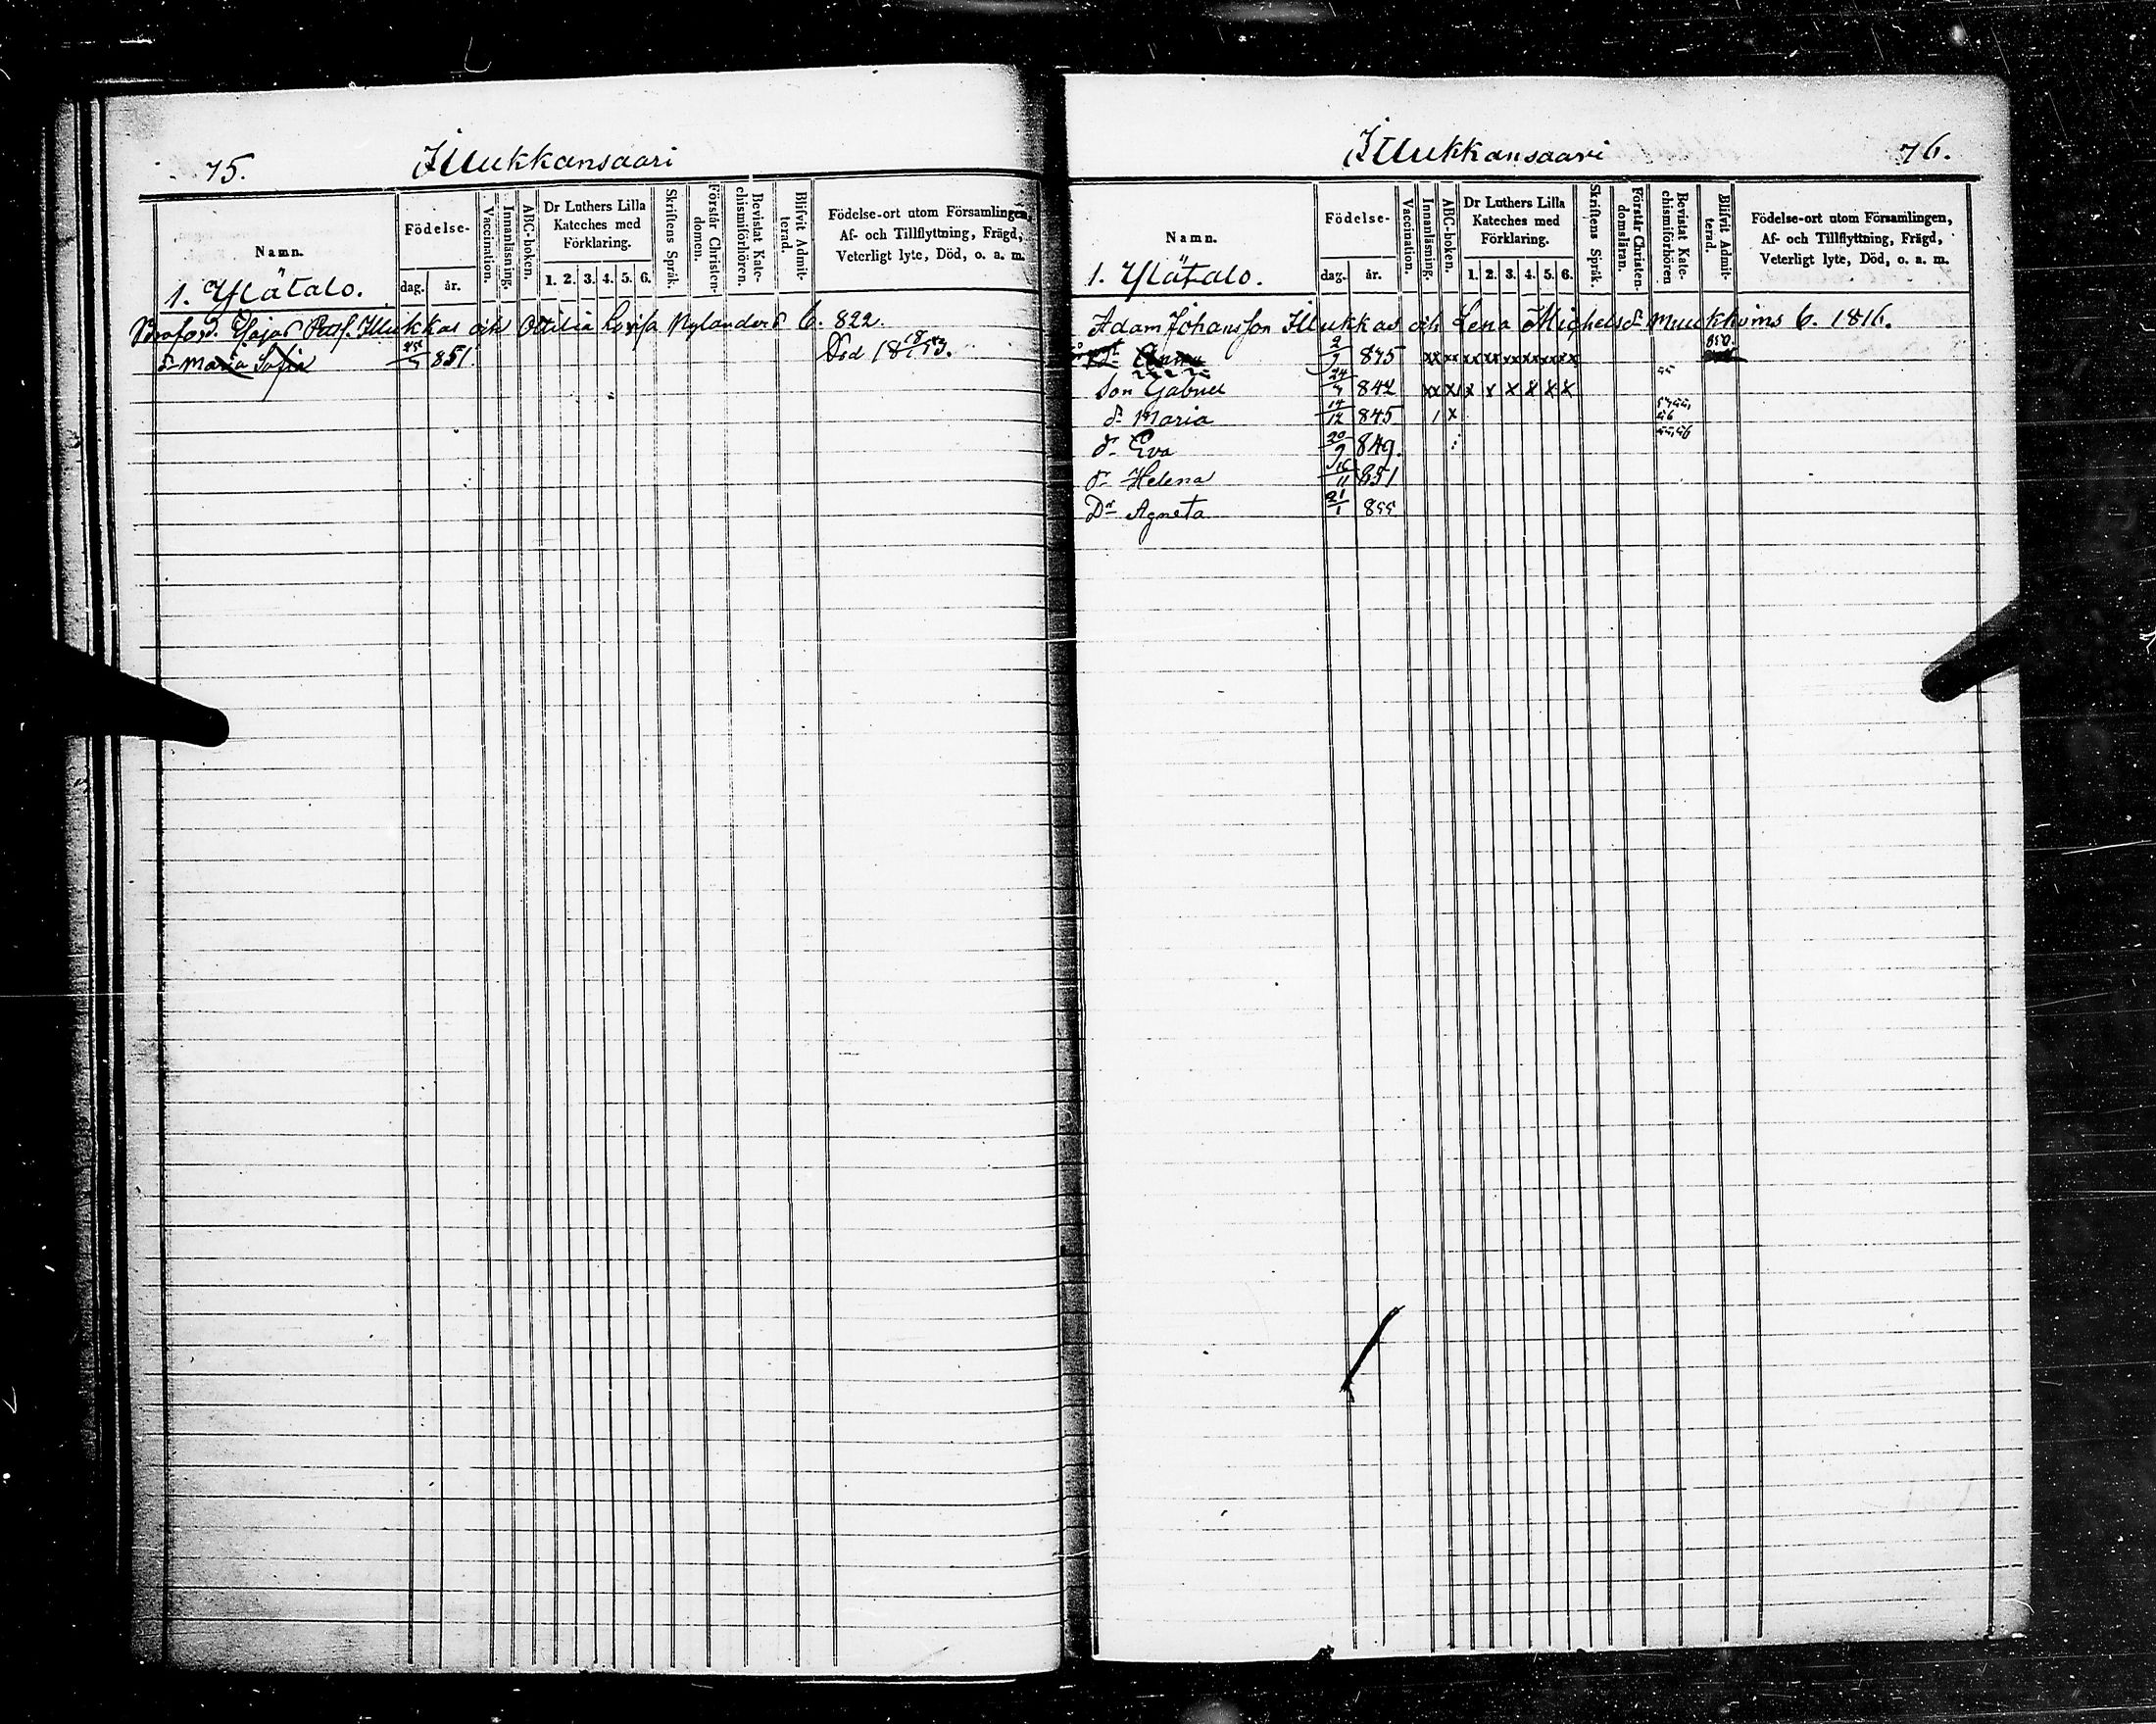 75. Illukkansaari
Namn.
Födelse-
dag. år.
Vaccination.
Innanläsning.
ABC-boken.
Dr Luthers Lilla Kateches med Förklaring.
1. 2. 3. 4. 5. 6.
Skriftens Språk.
Förstår Christen-domen.
Bevistat Kate-chismiförhören.
Blifvit Admit-terad.
Födelse-ort utom Församlingen, Af- och Tillflyttning, Frägd, Veterligt lyte, Död, o. a. m.
1. Ylätalo.
Illukkas och Ottilia Lovisa Nylander d. 6. 822.
dr Maria Sofia 851. Död 18 18/1 53.
Illukkansaari 76.
Namn.
Födelse-
dag. år.
Vaccination.
Innanläsning.
ABC-boken.
Dr Luthers Lilla Kateches med Förklaring.
1. 2. 3. 4. 5. 6.
Skriftens Språk.
Förstår Christen-domsläran.
Bevistat Kate-chismiförhören
Blifvit Admit-terad.
Födelse-ort utom Församlingen, Af- och Tillflyttning, Frägd, Veterligt lyte, Död, o. a. m.
1. Ylätalo.
Adam Johansson Illukkas och Lena Michelsdr 6. 1816.
xx xx xx xx xx xx xx xx
Son Gabriel 24/7 842 xx x x x x x x x 55
dr Maria 14/12 845 1 x
dr Eva 20/9 849.
dr Helena 16/11 851
Dr Agneta 21/1 855